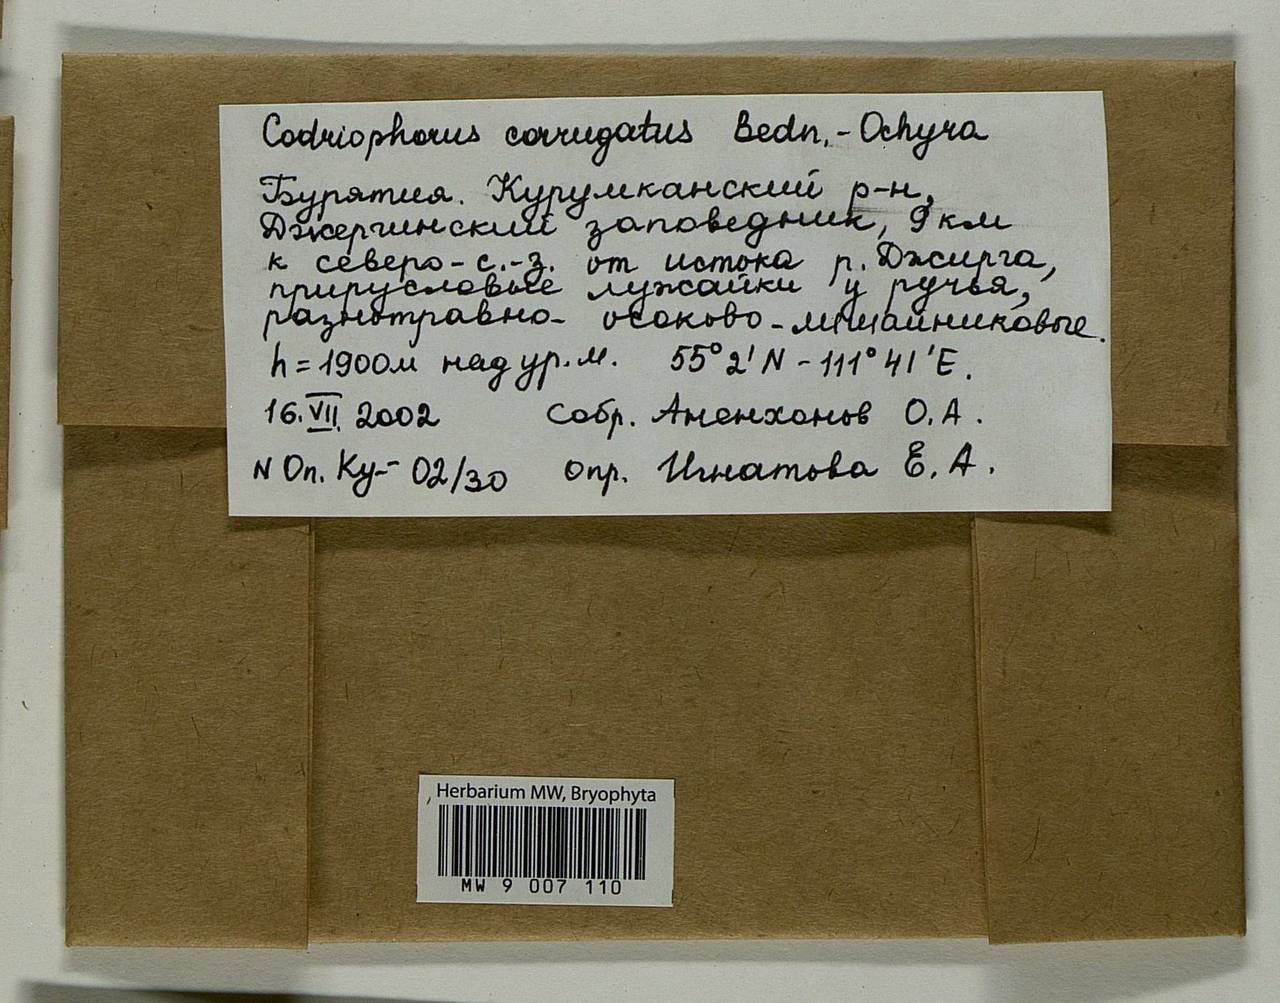 Codriophorus corrugatus Bedn.-Ochyra
Бурятия. Курумканский р-н,
Джергинский заповедник, 9 км
к северо-с.-з. от истока р. Джирга,
прирусловые лужайки у ручья,
разнотравно-осоково-лишайниковые.
h = 1900м над ур.м. 55°2'N - 111°41'E.
16.VII.2002 Собр. Аненхонов О.А.
N Оп. Ку- 02/30 Опр. Игнатова Е.А.
Herbarium MW, Bryophyta
MW 9 007 110